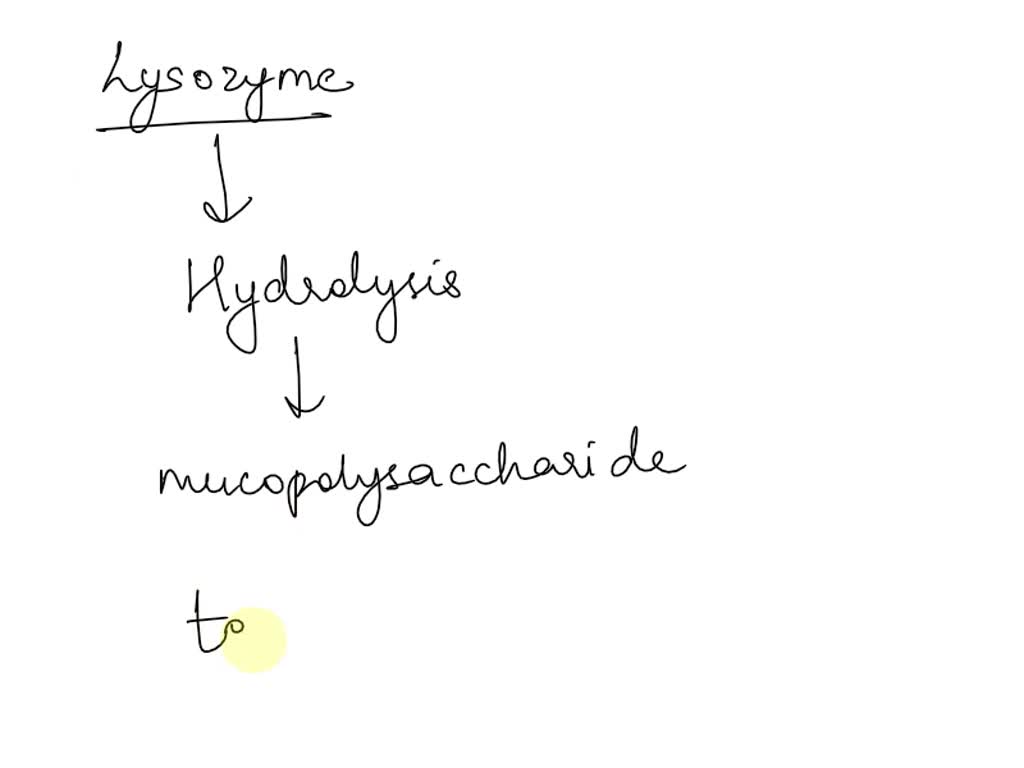 Lysozyme
Hydrolysis
mucopolysaccharide
to